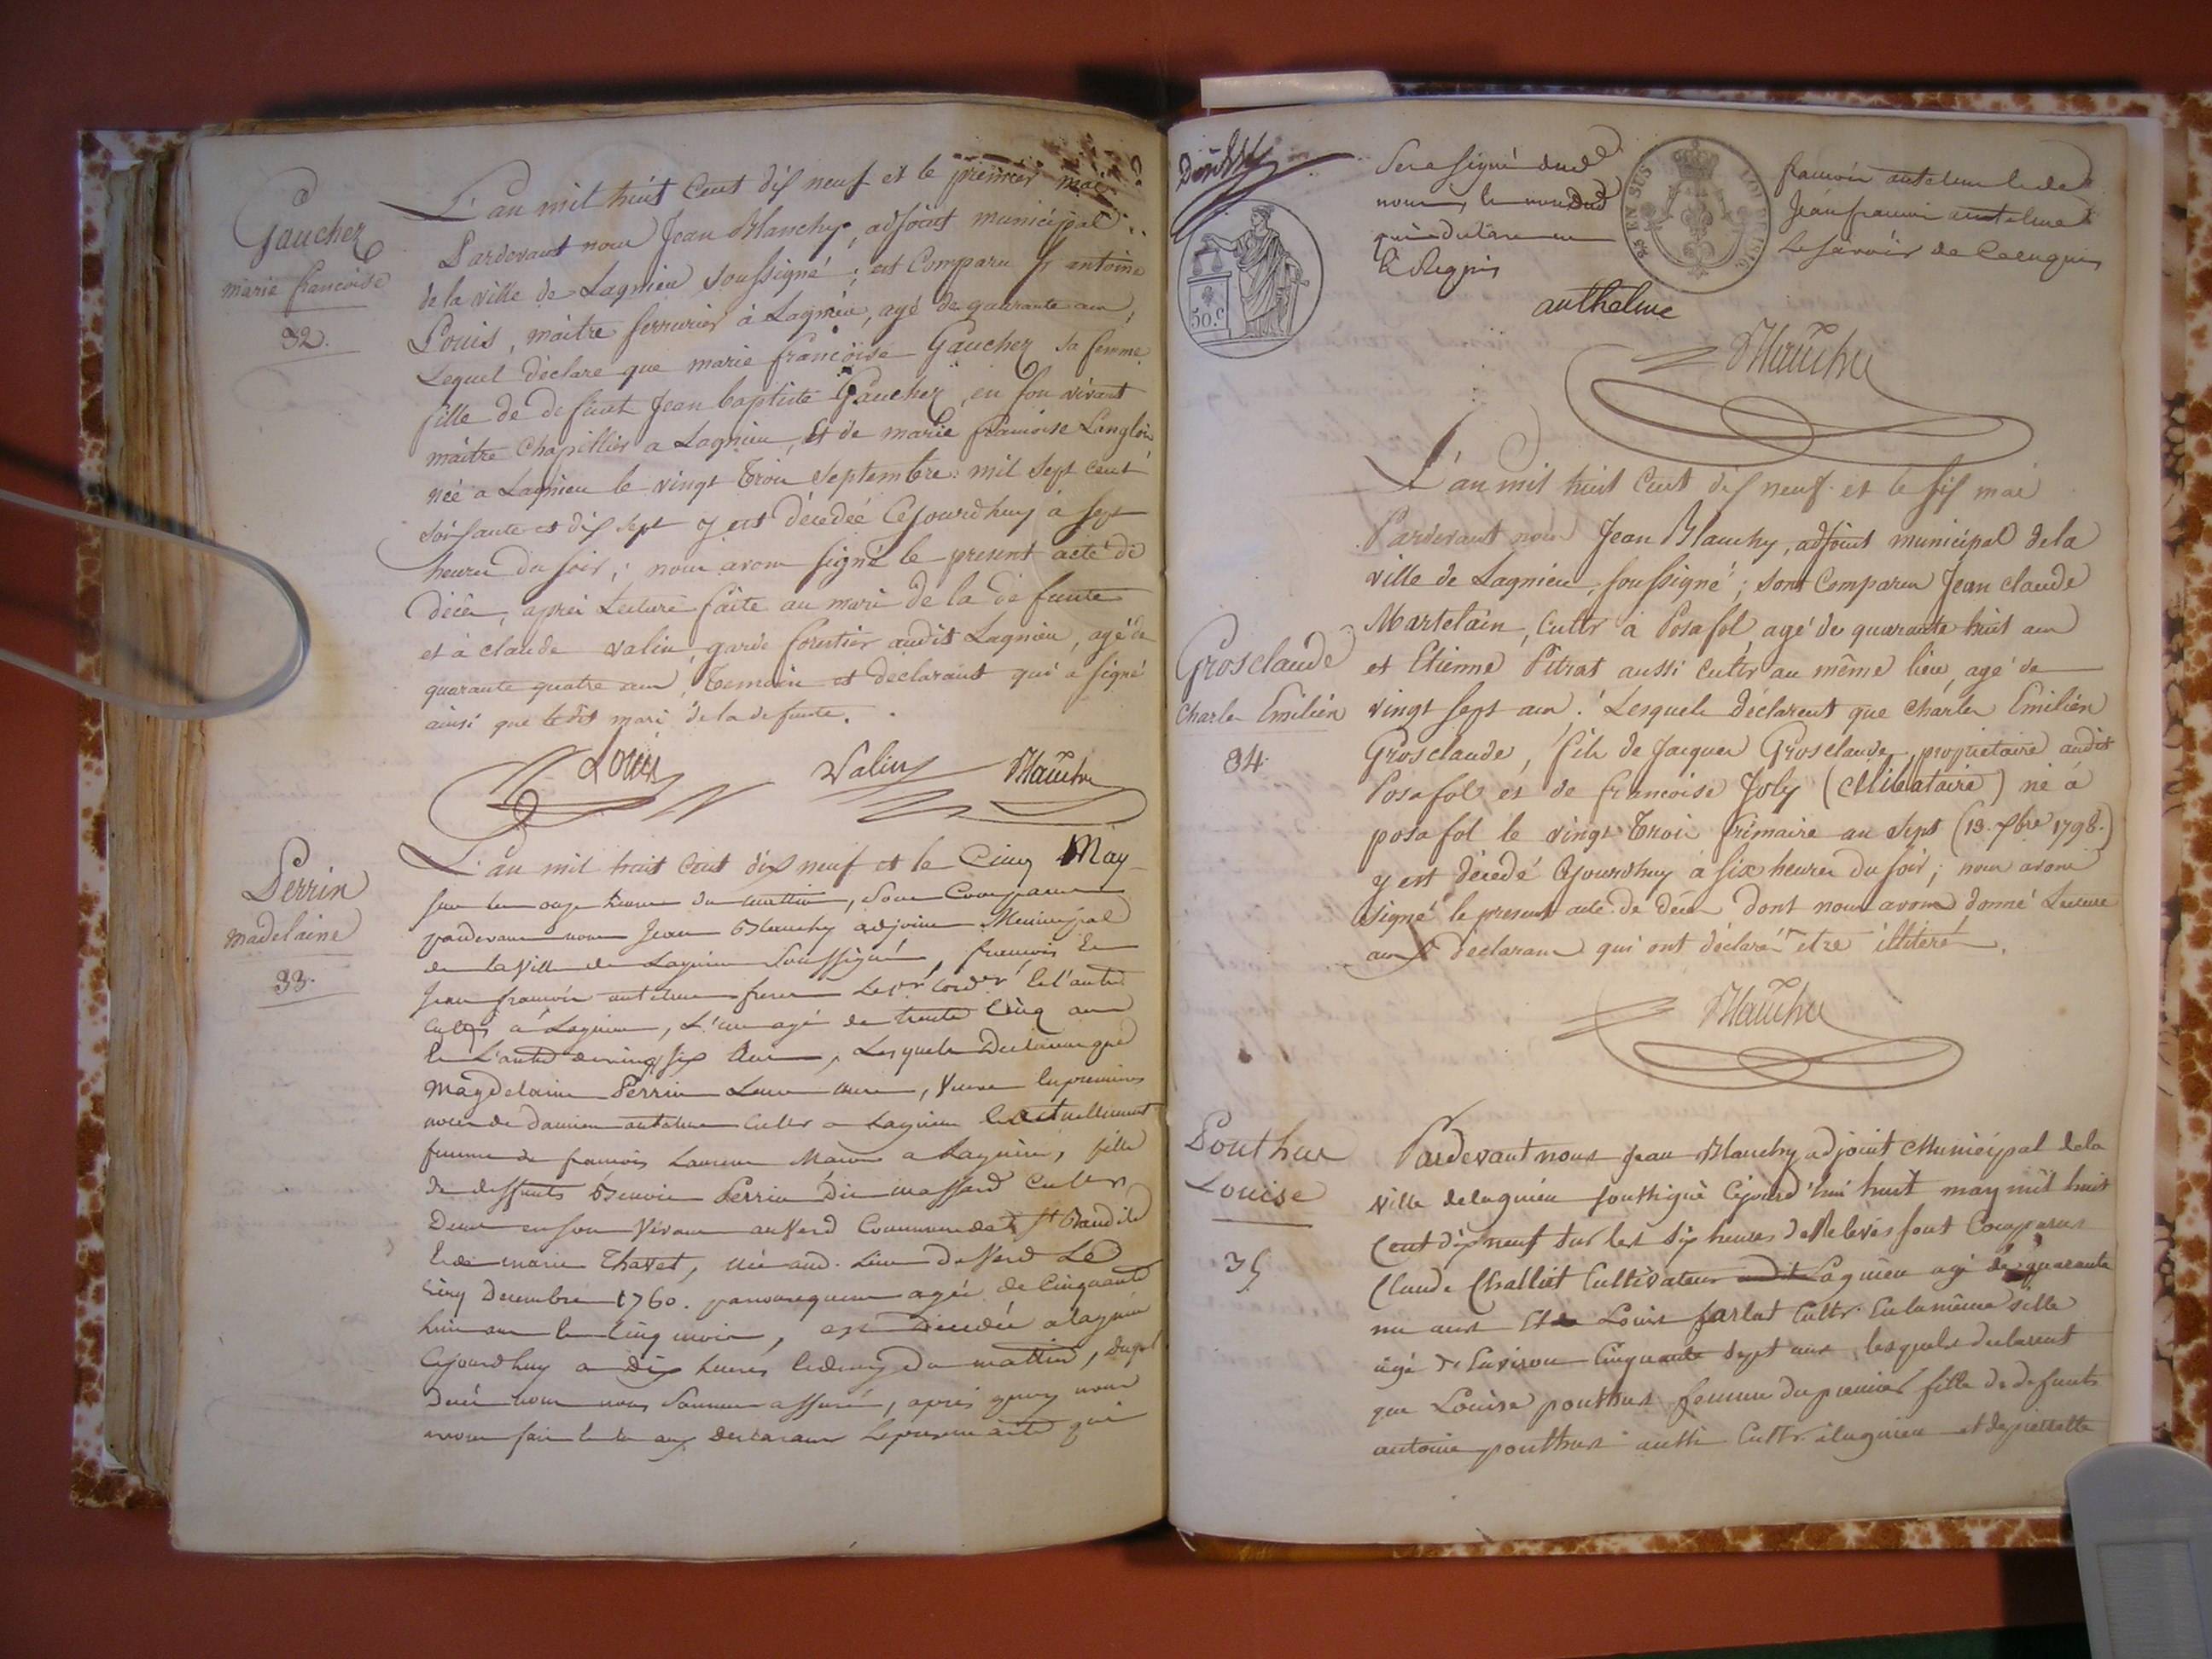 Gaucher
marie francoise
32.
L'an mil huit Cent dix neuf et le premier mai
Pardevant nous Jean Blanchy, adjoint municipal
de la ville de Lagnieu soussigné; est Comparu Sr antoine
Louis, maitre serrurier à Lagnieu, agé de quarante ans,
Lequel déclare que marie francoise Gaucher sa femme
fille de defunt Jean baptiste Gaucher, en son vivant
maitre Chapillier a Lagnieu, et de marie francoise Langlois
née a Lagnieu le vingt trois septembre mil sept cent
soixante et dix sept y est décédée Cejourdhuy à sept
heures du soir; nous avons signé le present acte de
décès, après Lecture faite au mari de la defunte
et à claude valin, garde forestier audit Lagnieu, agé de
quarante quatre ans, temoin et déclarant qui a signé
ainsi que le dit mari de la defunte.
Louis Valin Blanchy
Perrin
madelaine
33.
L'an mil huit Cent dix neuf et le Cinq May
sur les onze heures du mattin, sont Comparus
pardevant nous Jean Blanchy adjoint Municipal
de la Ville de Lagnieu Soussigné, francois et
Jean francois antelme freres le 1er Cordr et l'autre
Cultr à Lagnieu, L'un agé de trente Cinq ans
et L'autre de vingt six Ans, Lesquels Declarent que
Magdelaine Perrin Leur mere, Veuve en premieres
noces de damien antelme Cultr a Lagnieu et actuellement
femme de francois Laurent Macon a Lagnieu, fille
de deffunts Benoit Perrin dit massard Cultr
Demt en son Vivant au Verd Commune de St Baudille
et de marie Thavet, née aud. Lieu du Verd Le
Cinq Decembre 1760. par consequent agée de Cinquante
huit ans et Cinq mois, est decedée a lagnieu
Cejourdhuy a dix heures et demy du mattin, duquel
Decés nous nous Sommes assuré, après quoy nous
avons fait lecture aux declarans Le present acte qui
Sera signé dud
francois antelme et de
nous, le non dud
Jean francois antelme
Le savoir de Ce enquis
Et Requis
anthelme
Blanchy
50.C
Grosclaude
Charles Emilién
34.
L'an mil huit Cent dix neuf et le six mai
Pardevant nous Jean Blanchy, adjoint municipal de la
ville de Lagnieu, soussigné; sont Comparus Jean claude
Martelain, Cultr à Posafol, agé de quarante huit ans
et Etienne Pitrat aussi cultr au même lieu, agé de
vingt sept ans. Lesquels déclarent que Charles Emilién
Grosclaude, fils de Jacques Grosclaude, proprietaire audit
Posafol et de francoise Joly (célibataire) né à
posafol le vingt trois frimaire an sept (13. Xbre 1798.)
y est décédé Cejourdhuy à six heures du soir; nous avons
signé le present acte de décès dont nous avons donné Lecture
aux declarans qui ont déclaré être illitéré.
Blanchy
Pouthus
Louise
35
Pardevant nous Jean Blanchy adjoint Municipal de la
ville de lagnieu soussigné Cejourd'hui huit may mil huit
Cent dix neuf sur les six heures de Relevés sont Comparus
Claude Challiot Cultivateur audit Lagnieu agé de quarante
un ans Et de Louis farlat Cultr. En la même ville
agé d'Environ Cinquante Sept ans, lesquels declarent
que Louise pouthus femme du premier fille de defunts
antoine pouthus aussi Cultr. à lagnieu et de pierrette